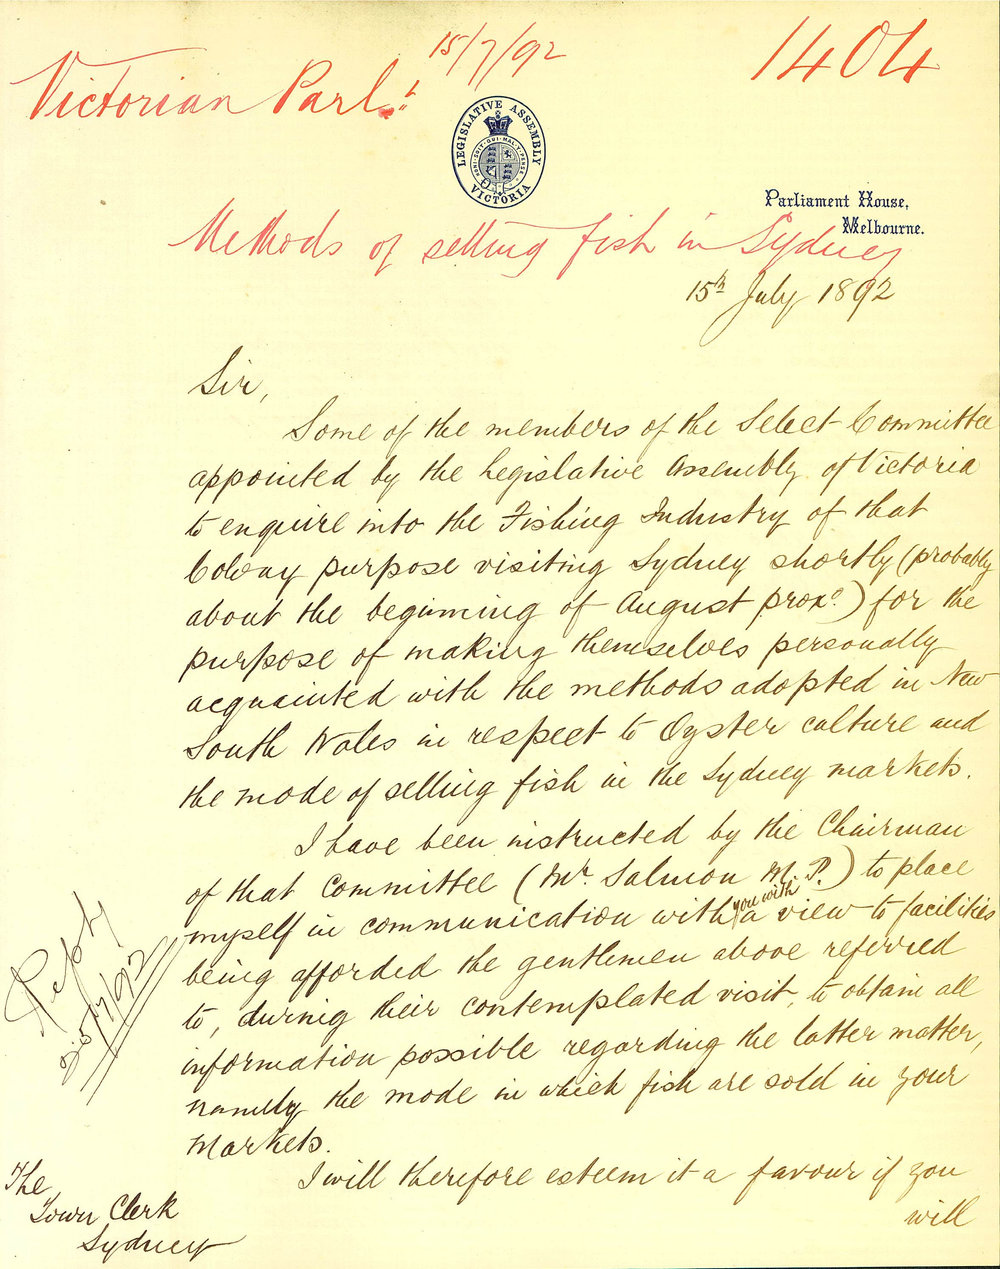 15/7/92
1404
Victorian Parlt.
LEGISLATIVE ASSEMBLY
VICTORIA
Parliament House,
Melbourne.
Methods of selling fish in Sydney
15th July 1892
Sir,
Some of the members of the Select Committee
appointed by the Legislative Assembly of Victoria
to enquire into the Fishing Industry of that
Colony purpose visiting Sydney shortly (probably
about the beginning of August proxo.) for the
purpose of making themselves personally
acquainted with the methods adopted in New
South Wales in respect to Oyster culture and
the mode of selling fish in the Sydney markets.
I have been instructed by the Chairman
of that Committee (Mr. Salmon M.P.) to place
myself in communication with you with a view to facilities
being afforded the gentlemen above referred
to, during their contemplated visit, to obtain all
information possible regarding the latter matter,
namely the mode in which fish are sold in your
Markets.
I will therefore esteem it a favour if you
will
Reply
/7/92
The
Town Clerk
Sydney